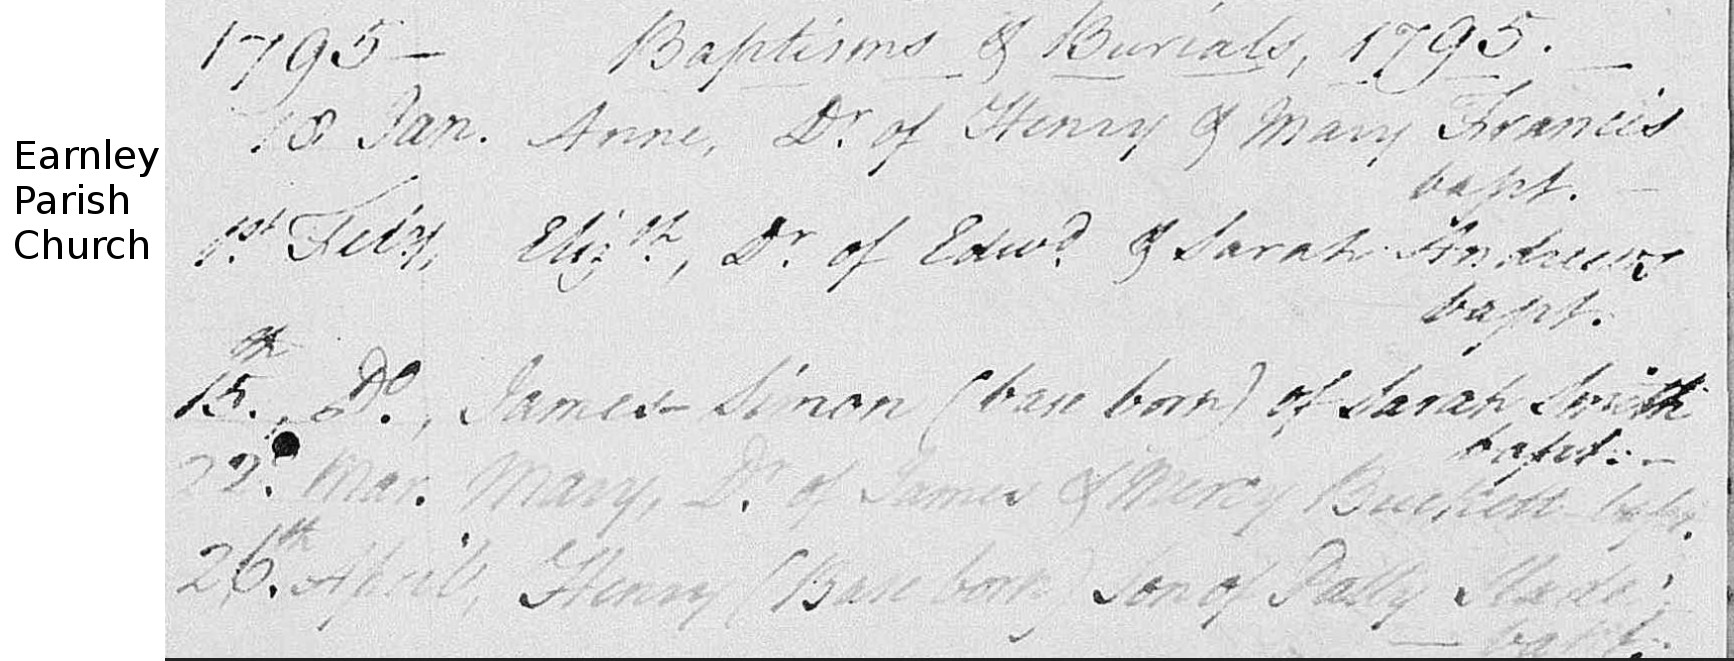 Earnley
Parish
Church
1795 — Baptisms & Burials, 1795. —
18 Jan. Anne, Dr. of Henry & Mary Francis
bapt. —
1st. Feby, Elizth, Dr. of Edwd. & Sarah Andrews
bapt.
15th. Do., James Simon (base born) of Sarah Smith
bapt. —
22d. Mar. Mary, Dr. of James & Mercy Buckett bapt.
26th. April, Henry (Base born) Son of Patty
— bapt.